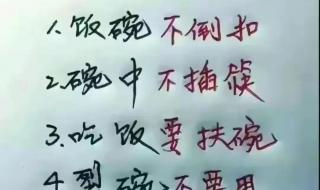 1.饭碗不倒扣
2.碗中不插筷
3.吃饭要扶碗
4.裂碗不要用